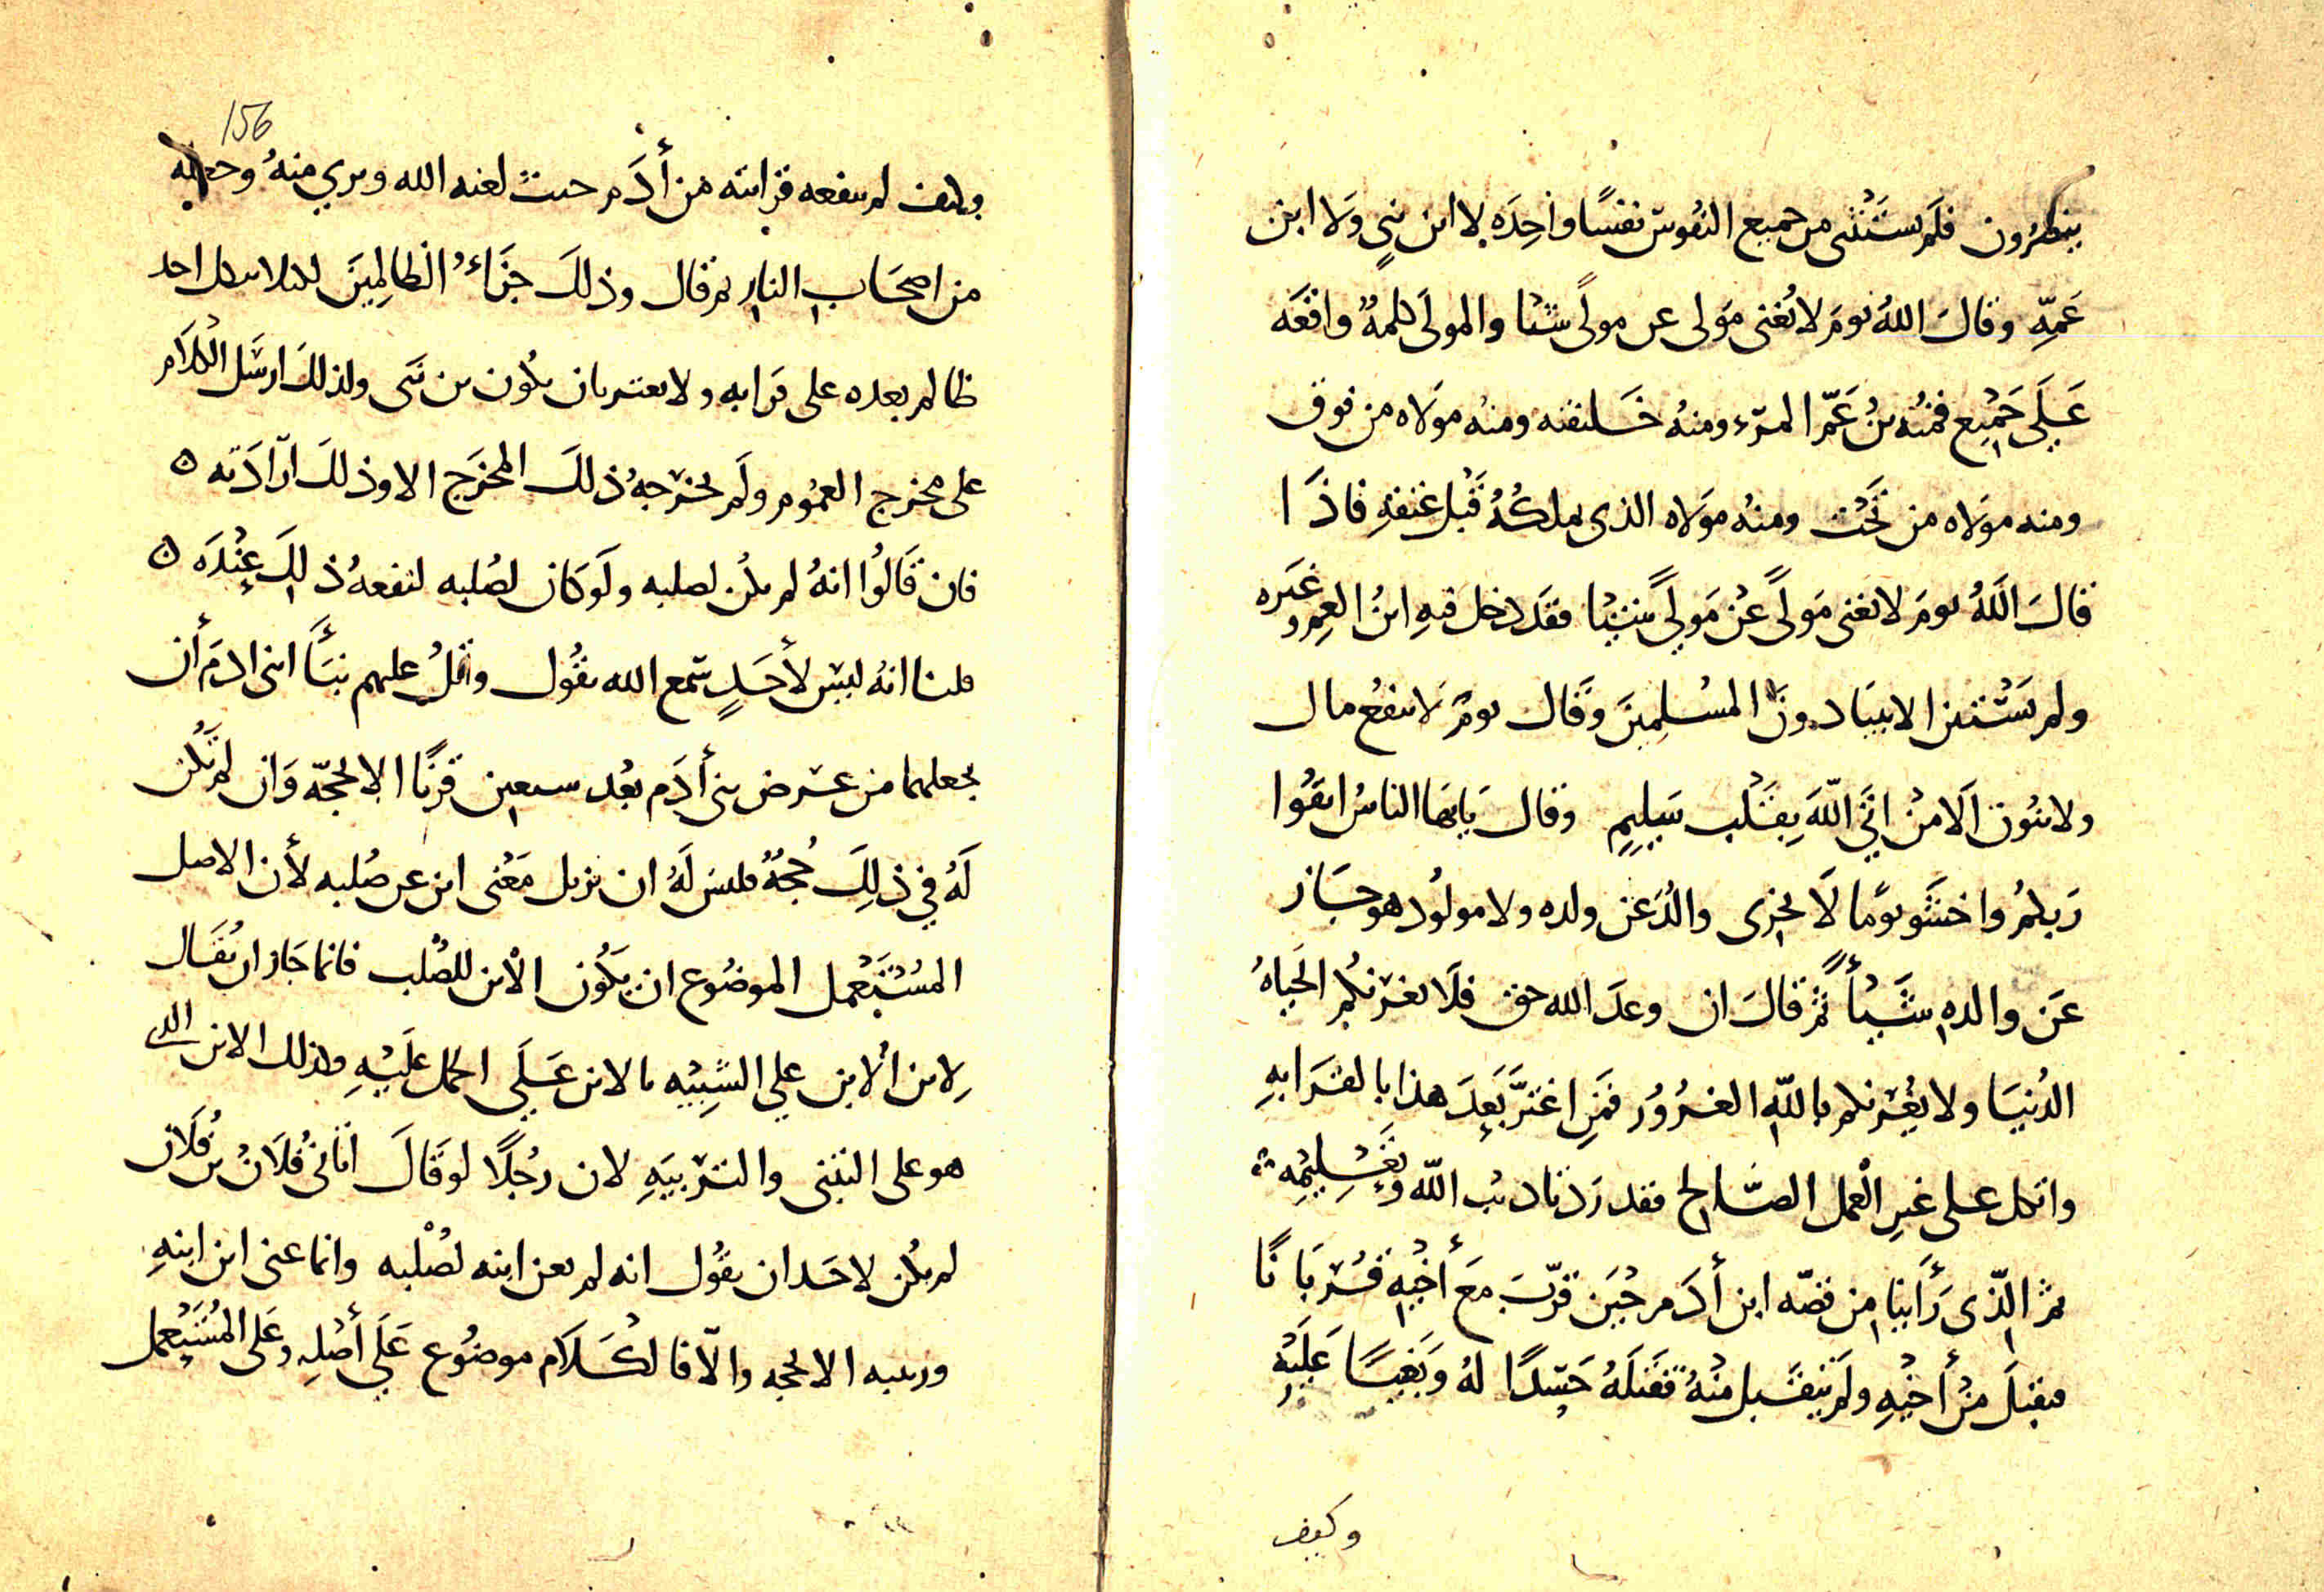 ينظرون فلم يستثنى من جميع النفوس نفسًا واحِدَه لا ابن نبيٍ وَلا ابن
عَمِّهِ وقالَ اللهُ يومَ لا يُغنى مَولى عن مولًى شيئا والمولَى كلمةٌ واقعَه
عَلَى جَمِيع فمنْهُ بنُ عَمّ المرْء ومنهُ خَليفته ومنه مولاه من فوق
ومنه مَولاه من تَحْت ومنهُ مَولاه الذى يملكُهُ قَبْل عتقهِ فاذَا
قالَ اللَّهُ يومَ لا يغنى مَولًى عَنْ مَوليً شَيْئا فقَد دخل فيهِ ابنُ العم وغَيره
ولم يَسْتَثن الانبيا دونَ المسْلمِينَ وَقال يومَ لا ينفعُ مال
ولا بنُون اَلا مَنْ اتَى اللّهَ بِقَلْب سَلِيمٍ وقال يَايهَا الناسُ اتقُوا
رَبكمُ واخشَو يومًا لَا يجزى والدٌ عَن ولده ولا مولُود هو جَاز
عَن والدهِ شَيْأً ثم قالَ ان وعدَ الله حق فلَا تغرّنكم الحَياهُ
الدُنيَا ولا يغُرّنكم باللّهِ الغرُورُ فمَنِ اغتَرَّ بَعدَ هذا بالقرَابهِ
واتكل على غيرِ العْمل الصّالح فقد رَدّ تاديْب اللّه وَتَعْلِيمِه
ثم الذّى رَأَينا من قصّه ابن أدَم حِيْنَ قرّبَ مَعَ أخْيهِ قُرْبَانًا
فتقبلَ مِنْ أخْيهِ ولَم يتقَبل منْهُ فقَتَلَهُ حَسَدًا لهُ وَبَغيًا عَلَيْهِ
وكيف
156
وكيف لم ينفعه قرابته من أدَم حيث لعنه الله وبري منهُ وجعله
من اصحَاب النار ثم قال وذلكَ جزَاءُ الظالِمِينَ لئلا يتكل احد
ظالم بعده على قرابه ولا يغتر بان يكُون بن نبَى ولذلكَ ارسَل الكلَام
على مخرج العمُوم ولَم يخرّجهُ ذلكَ المخرَج الا وذلكَ ارَادَته ه
فان قَالُوا انهُ لم يكُن لصلبه ولَو كان لصُلبه لنفعهُ ذلِكَ عِنْدَه ه
قلنا انهُ ليسَ لأحَدٍ سَمع الله يقُول واتلُ عليهم نبَأَ ابنى ادَم أن
يجعلهما من عرض بنى أدَم بعْد سبعين قرنًا الا بحجّه وَان لم تكُن
لَهُ في ذلِكَ حُجةٌ فليس لَهُ ان يزيل مَعْنى ابن عن صُلبه لأن الاصل
المسْتَعْمل الموضُوع ان يَكُون الاْبن للصْلب فانما جَاز ان يُقَال
لابن الاْبن علي التشبِيْه بالابن عَلَي الحمل عَلَيْهِ وكذلك الابن الذى
هو على التبنى والترْبيَهِ لان رجُلًا لو قالَ اتانىْ فلَانُ بن فُلَان
لم يكُن لاحَد ان يقُول انه لم يعن ابنه لصْلبه وانما عنى ابن ابنهِ
وربيبه الا بحجه والّا فالكَلَام موضُوع عَلَي أصْلِهِ وعَلى المُسْتَعْمل